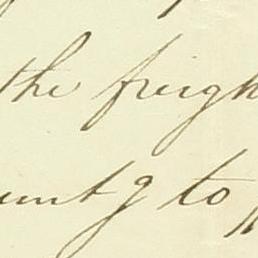 the freigh
unt g to